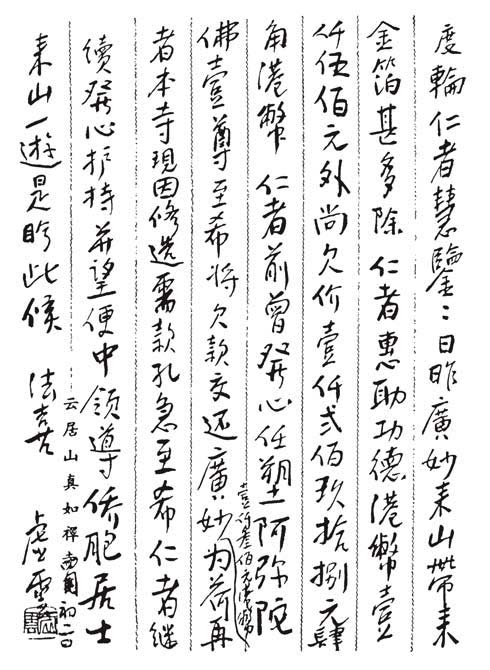 度輪仁者慧鑒：日昨廣妙來山帶來
金箔甚多除 仁者惠助功德港幣壹
仟伍佰元外尚欠价壹仟弍佰玖拾捌元肆
角港幣 仁者前曾發心任塑阿弥陀
佛壹尊至希將欠款交还廣妙为荷再
壹仟叁佰元港幣
者本寺現因修造需款孔急至希仁者継
續發心护持并望便中領導侨胞居士
来山一遊是盼此候 法喜
虛雲
云居山真如禪寺 初二日